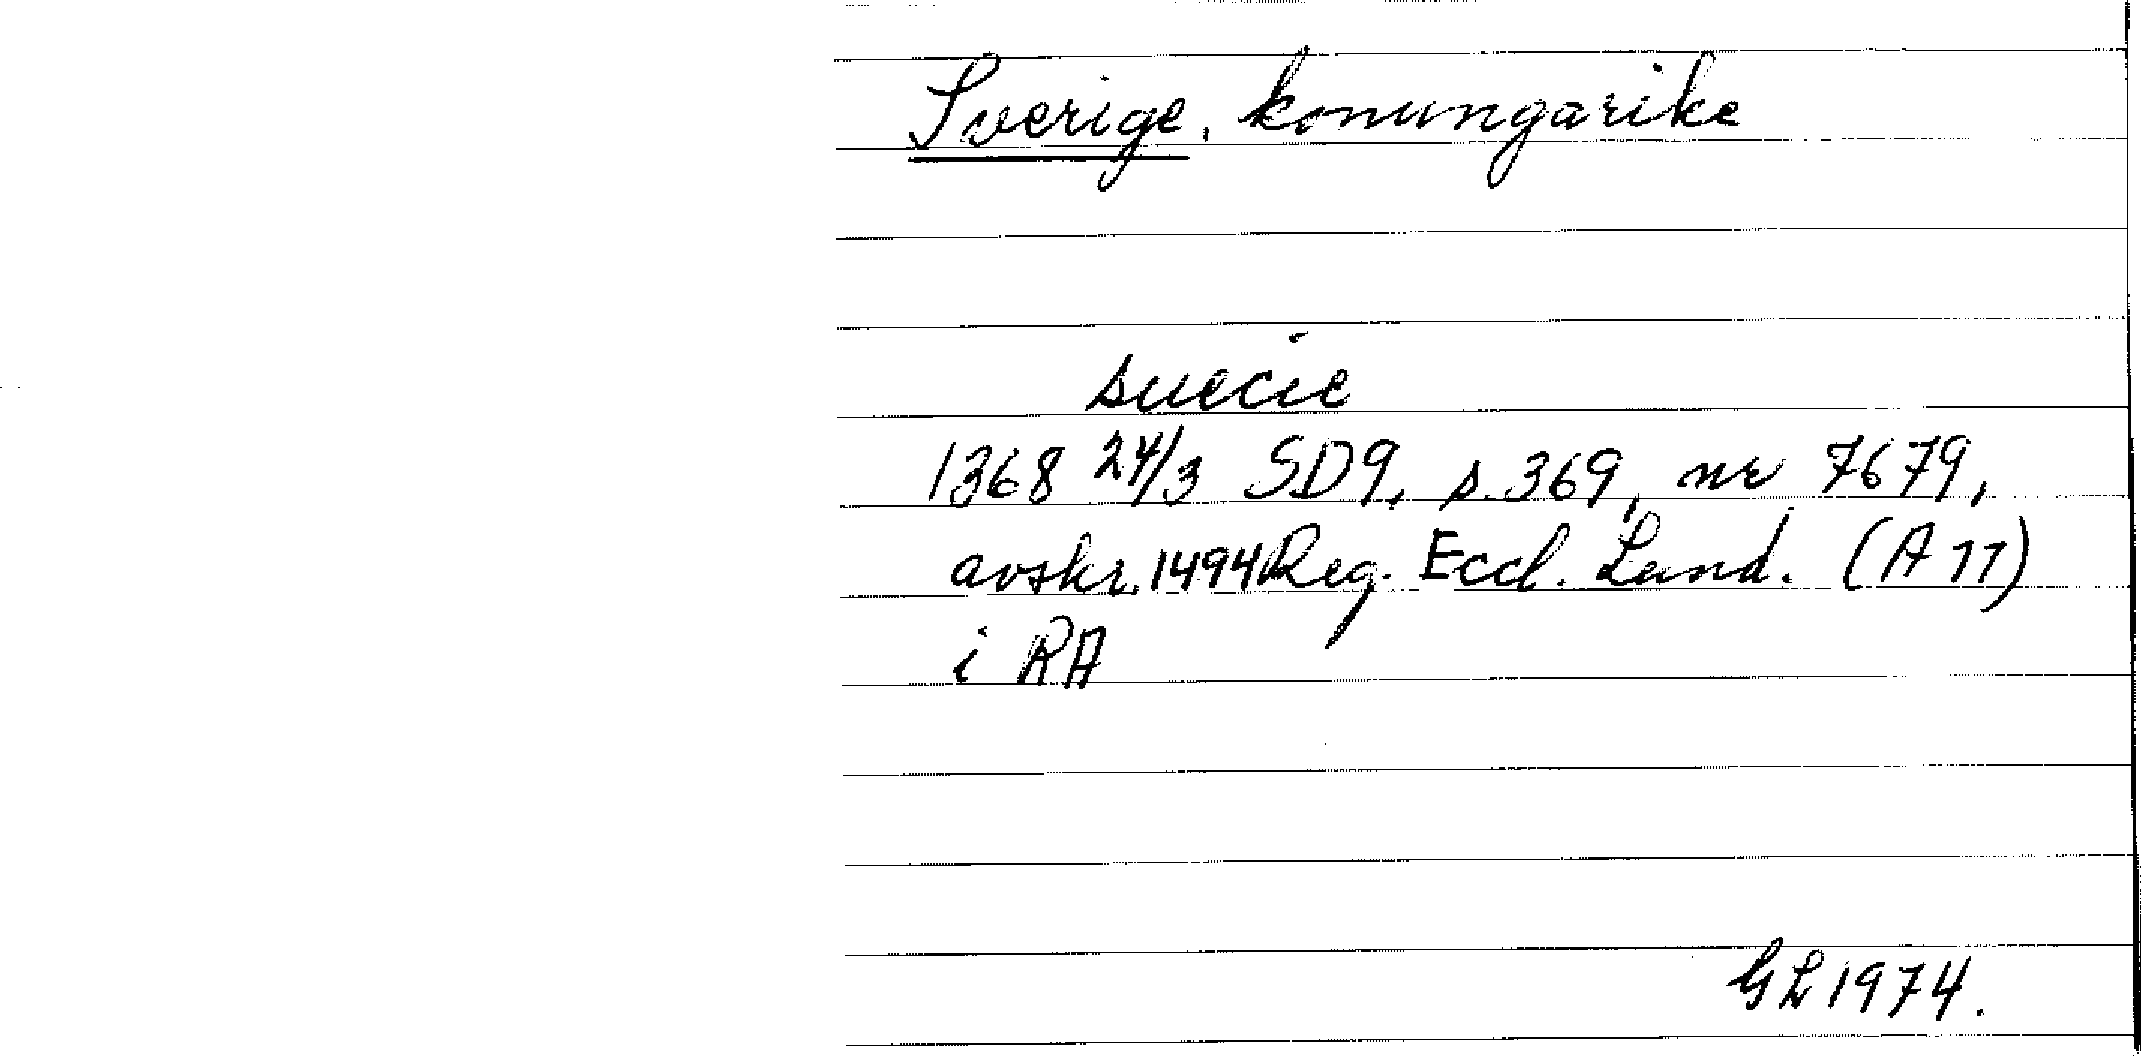 Sverige, konungarike
suecie
1368 24/3 SD9, s. 369, nr 7679,
avskr. 1494 Reg. Eccl. Lund. (A 11)
i RA
GL 1974.